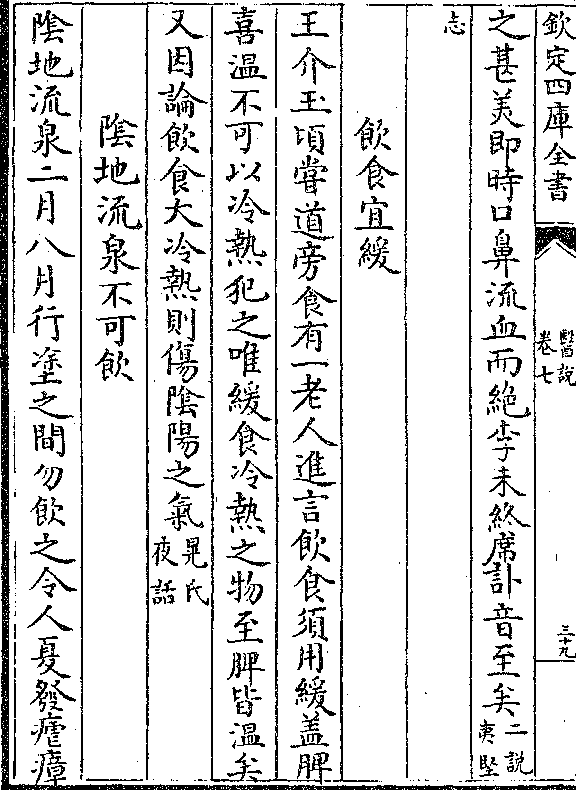 欽定四庫全書
醫說
卷七
三十九
之甚美即時口鼻流血而絶李未終席訃音至矣二說夷堅
志
飲食宜緩
王介玉頃嘗道旁食有一老人進言飲食須用緩盖脾
喜溫不可以冷熱犯之唯緩食冷熱之物至脾皆溫矣
又因論飲食大冷熱則傷隂陽之氣晁氏夜話
隂地流泉不可飲
隂地流泉二月八月行塗之間勿飲之令人夏發瘧瘴